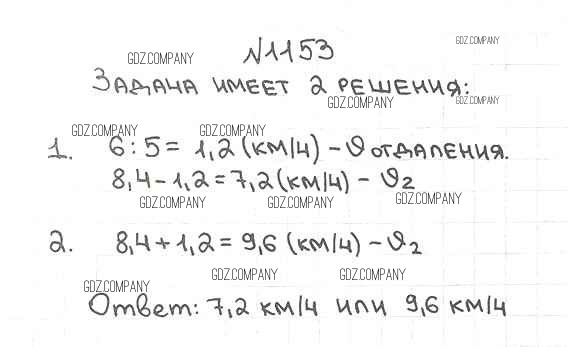 GDZ.COMPANY №1153 GDZ.COMPANY
ЗАДАЧА ИМЕЕТ 2 РЕШЕНИЯ:
GDZ.COMPANY GDZ.COMPANY
GDZ.COMPANY GDZ.COMPANY
1. 6 : 5 = 1,2 (КМ/Ч) – V ОТДАЛЕНИЯ.
8,4 – 1,2 = 7,2 (КМ/Ч) – V2
GDZ.COMPANY GDZ.COMPANY GDZ.COMPANY
2. 8,4 + 1,2 = 9,6 (КМ/Ч) – V2
GDZ.COMPANY GDZ.COMPANY
GDZ.COMPANY
Ответ: 7,2 КМ/Ч ИЛИ 9,6 КМ/Ч